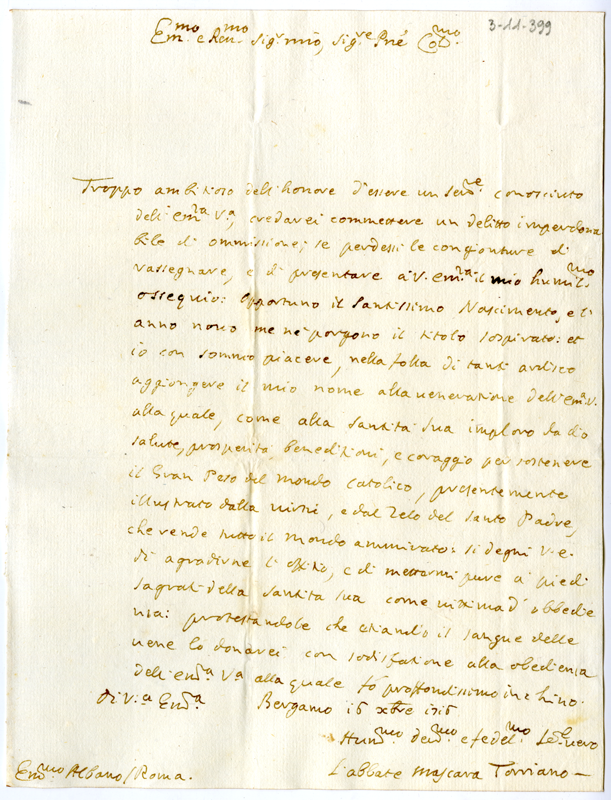 3-11-399
Em.mo e Rev.mo Sig.r mio, Sig.re Pne Co.mo
Troppo ambitioso dell'honore d'essere un Ser.re conosciuto
dell'em.za V.a, crederei commettere un delitto imperdona
bile di ommissione; se perdessi le congionture di
rassegnare, e di presentare a V. em.za il mio humil.mo
ossequio: opportuno il Santissimo Nascimento, e l'
anno novo me ne porgono il titolo sospirato: et
io con sommo piacere, nella folla di tanti ardisco
aggiongere il mio nome alla veneratione dell'em.a V.
alla quale, come alla Santità Sua imploro da dio
salute, prosperità, benedizioni, e coraggio per sostenere
il Gran Peso del Mondo Catolico, presentemente
illustrato dalla virtù, e dal Zelo del Santo Padre,
che rende tutto il Mondo ammirato: si degni V. E.
di agradirne l'offitio, e di mettermi pure a' piedi
sagrati della Santità Sua come vittima d'obbedie
nza: protestandole che etiandio il sangue delle
vene lo donarei con sodisfatione alla obedienza
dell'em.a V.a alla quale fò proffondissimo inchino.
di V.a Em.a Bergamo 16 xbre 1716
Hum.mo dev.mo e fedel.mo Se.e vero
Em.mo Albano / Roma. L'abbate Mascara Torriano